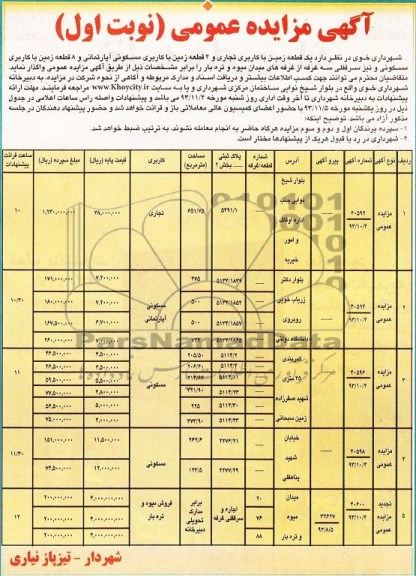 آگهی مزایده عمومی (نوبت اول)
شهرداری خوی در نظر دارد یک قطعه زمین با کاربری تجاری و ۴ قطعه زمین با کاربری مسکونی آپارتمانی و ۸ قطعه زمین با کاربری
مسکونی و نیز سرقفلی سه غرفه از غرفه های میدان میوه و تره بار را برابر مشخصات ذیل از طریق آگهی مزایده عمومی واگذار نماید.
متقاضیان محترم می توانند جهت کسب اطلاعات بیشتر و دریافت اسناد و مدارک مربوطه و آگاهی از نحوه شرکت در مزایده، به دبیرخانه
شهرداری خوی واقع در بلوار شیخ نوایی ساختمان مرکزی شهرداری و یا به سایت www.Khoycity.ir مراجعه فرمایند. مهلت ارائه
پیشنهادات به دبیرخانه شهرداری تا آخر وقت اداری روز شنبه مورخه ۹۳/۱۱/۴ می باشد و پیشنهادات واصله راس ساعات اعلامی در جدول
ذیل در روز یکشنبه مورخه ۹۳/۱۱/۵ با حضور اعضای کمیسیون عالی معاملاتی باز و قرائت خواهد شد و حضور پیشنهاد دهندگان در جلسه
مذکور آزاد می باشد. توضیح اینکه:
۱- سپرده برندگان اول و دوم و سوم مزایده هرگاه حاضر به انجام معامله نشوند، به ترتیب ضبط خواهد شد.
۲- شهرداری در رد یا قبول هریک از پیشنهادها مختار است.
ردیف نوع آگهی شماره آگهی پیرو آگهی آدرس شماره قطعه/غرفه پلاک ثبتی بخش ۲ مساحت (مترمربع) کاربری قیمت پایه (ریال) مبلغ سپرده (ریال) ساعت قرائت پیشنهادات
۱ مزایده عمومی ۲۰۵۹۲ ۹۳/۱۰/۲ بلوار شیخ نوایی جنب اداره اوقاف و امور خیریه ۵۲۹۱/۱ ۶۵۱/۷۵ تجاری ۳۸,۰۰۰,۰۰۰ ۱,۲۳۰,۰۰۰,۰۰۰ ۱۰
۲ مزایده عمومی ۲۰۵۹۴ ۹۳/۱۰/۲ بلوار دکتر زریاب خویی روبروی دانشگاه دولتی مسکونی آپارتمانی ۱۰/۳۰
۵۱۳۳/۱۸۳۷ ۴۷۵ ۷,۲۰۰,۰۰۰ ۱۷۱,۰۰۰,۰۰۰
۵۱۳۳/۱۸۵۴ ۵۰۰ ۷,۲۰۰,۰۰۰ ۱۸۰,۰۰۰,۰۰۰
۵۱۳۳/۱۸۵۷ ۵۰۰ ۶,۷۰۰,۰۰۰ ۱۶۷,۵۰۰,۰۰۰
۳ مزایده عمومی ۲۰۵۹۶ ۹۳/۱۰/۲ کمربندی ۲۵ متری شهید صفرزاده زمین سبحانی مسکونی ۱۱
۵۱۱۴/۲ ۲۰۵/۵۰ ۴,۵۰۰,۰۰۰ ۴۶,۵۰۰,۰۰۰
۵۱۱۴/۴۳ ۴,۸۰۰,۰۰۰ ۷۷,۵۰۰,۰۰۰
۲۲۵ ۵,۰۰۰,۰۰۰ ۵۶,۵۰۰,۰۰۰
۴ مزایده عمومی ۲۰۵۹۸ ۹۳/۱۰/۲ خیابان شهید پناهقلی مسکونی ۱۱/۳۰
۲۲۷۶/۲۱ ۲۶۲/۶ ۱۱,۵۰۰,۰۰۰ ۱۵۱,۰۰۰,۰۰۰
۲۲۷۷/۲۹ ۱۲۴/۵ ۱۲,۰۰۰,۰۰۰ ۷۴,۵۰۰,۰۰۰
۵ تجدید مزایده عمومی ۲۰۶۰۰ ۹۳/۱۰/۲ ۳۲۶۲۷ ۹۳/۸/۵ میدان میوه و تره بار اجاره و سرقفلی غرفه برابر مدارک تحویلی دبیرخانه فروش میوه و تره بار ۱۲
۲۰ ۴,۰۰۰,۰۰۰,۰۰۰ ۲۰۰,۰۰۰,۰۰۰
۷۶ ۴,۰۰۰,۰۰۰,۰۰۰ ۲۰۰,۰۰۰,۰۰۰
۸۸ ۴,۰۰۰,۰۰۰,۰۰۰ ۲۰۰,۰۰۰,۰۰۰
شهردار - تیزپاز نیاری
ParsNamadData